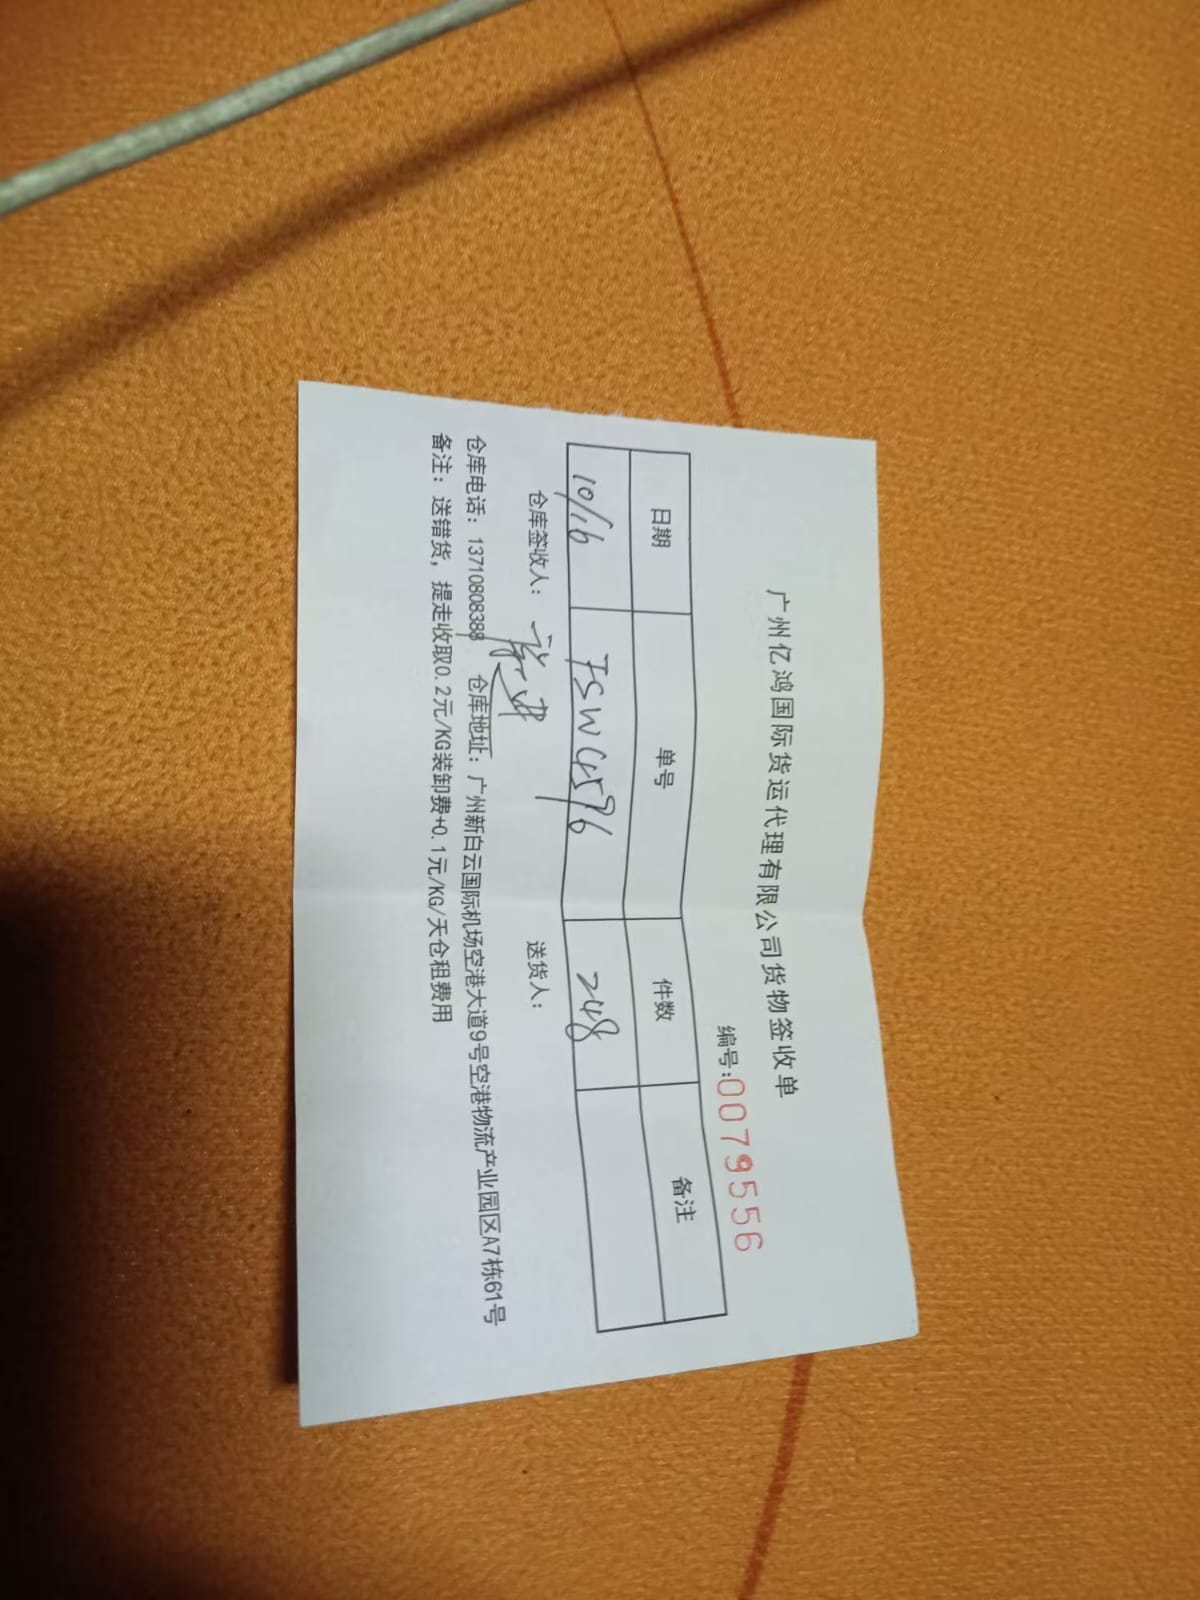 广州亿鸿国际货运代理有限公司货物签收单
编号:0079556
日期 单号 件数 备注
10/16 FSWC4596 248
仓库签收人: 送货人:
仓库电话: 13710808388 仓库地址: 广州新白云国际机场空港大道9号空港物流产业园区A7栋61号
备注: 送错货, 提走收取0.2元/KG装卸费+0.1元/KG/天仓租费用